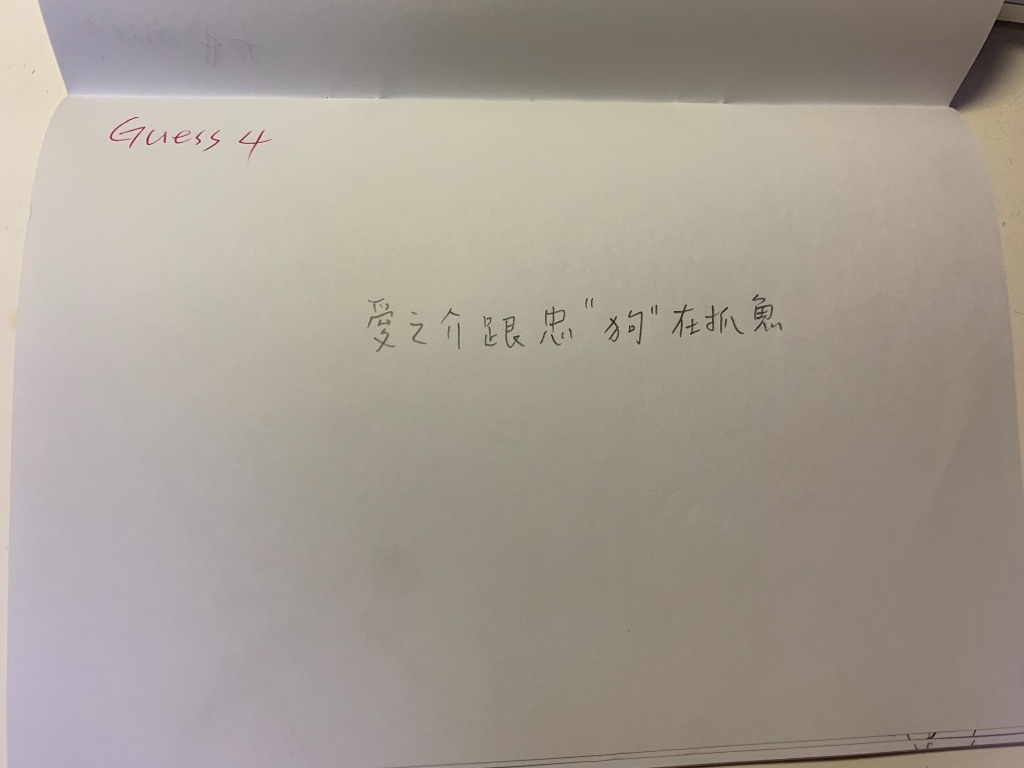 Guess 4
愛之介跟忠"狗"在抓魚